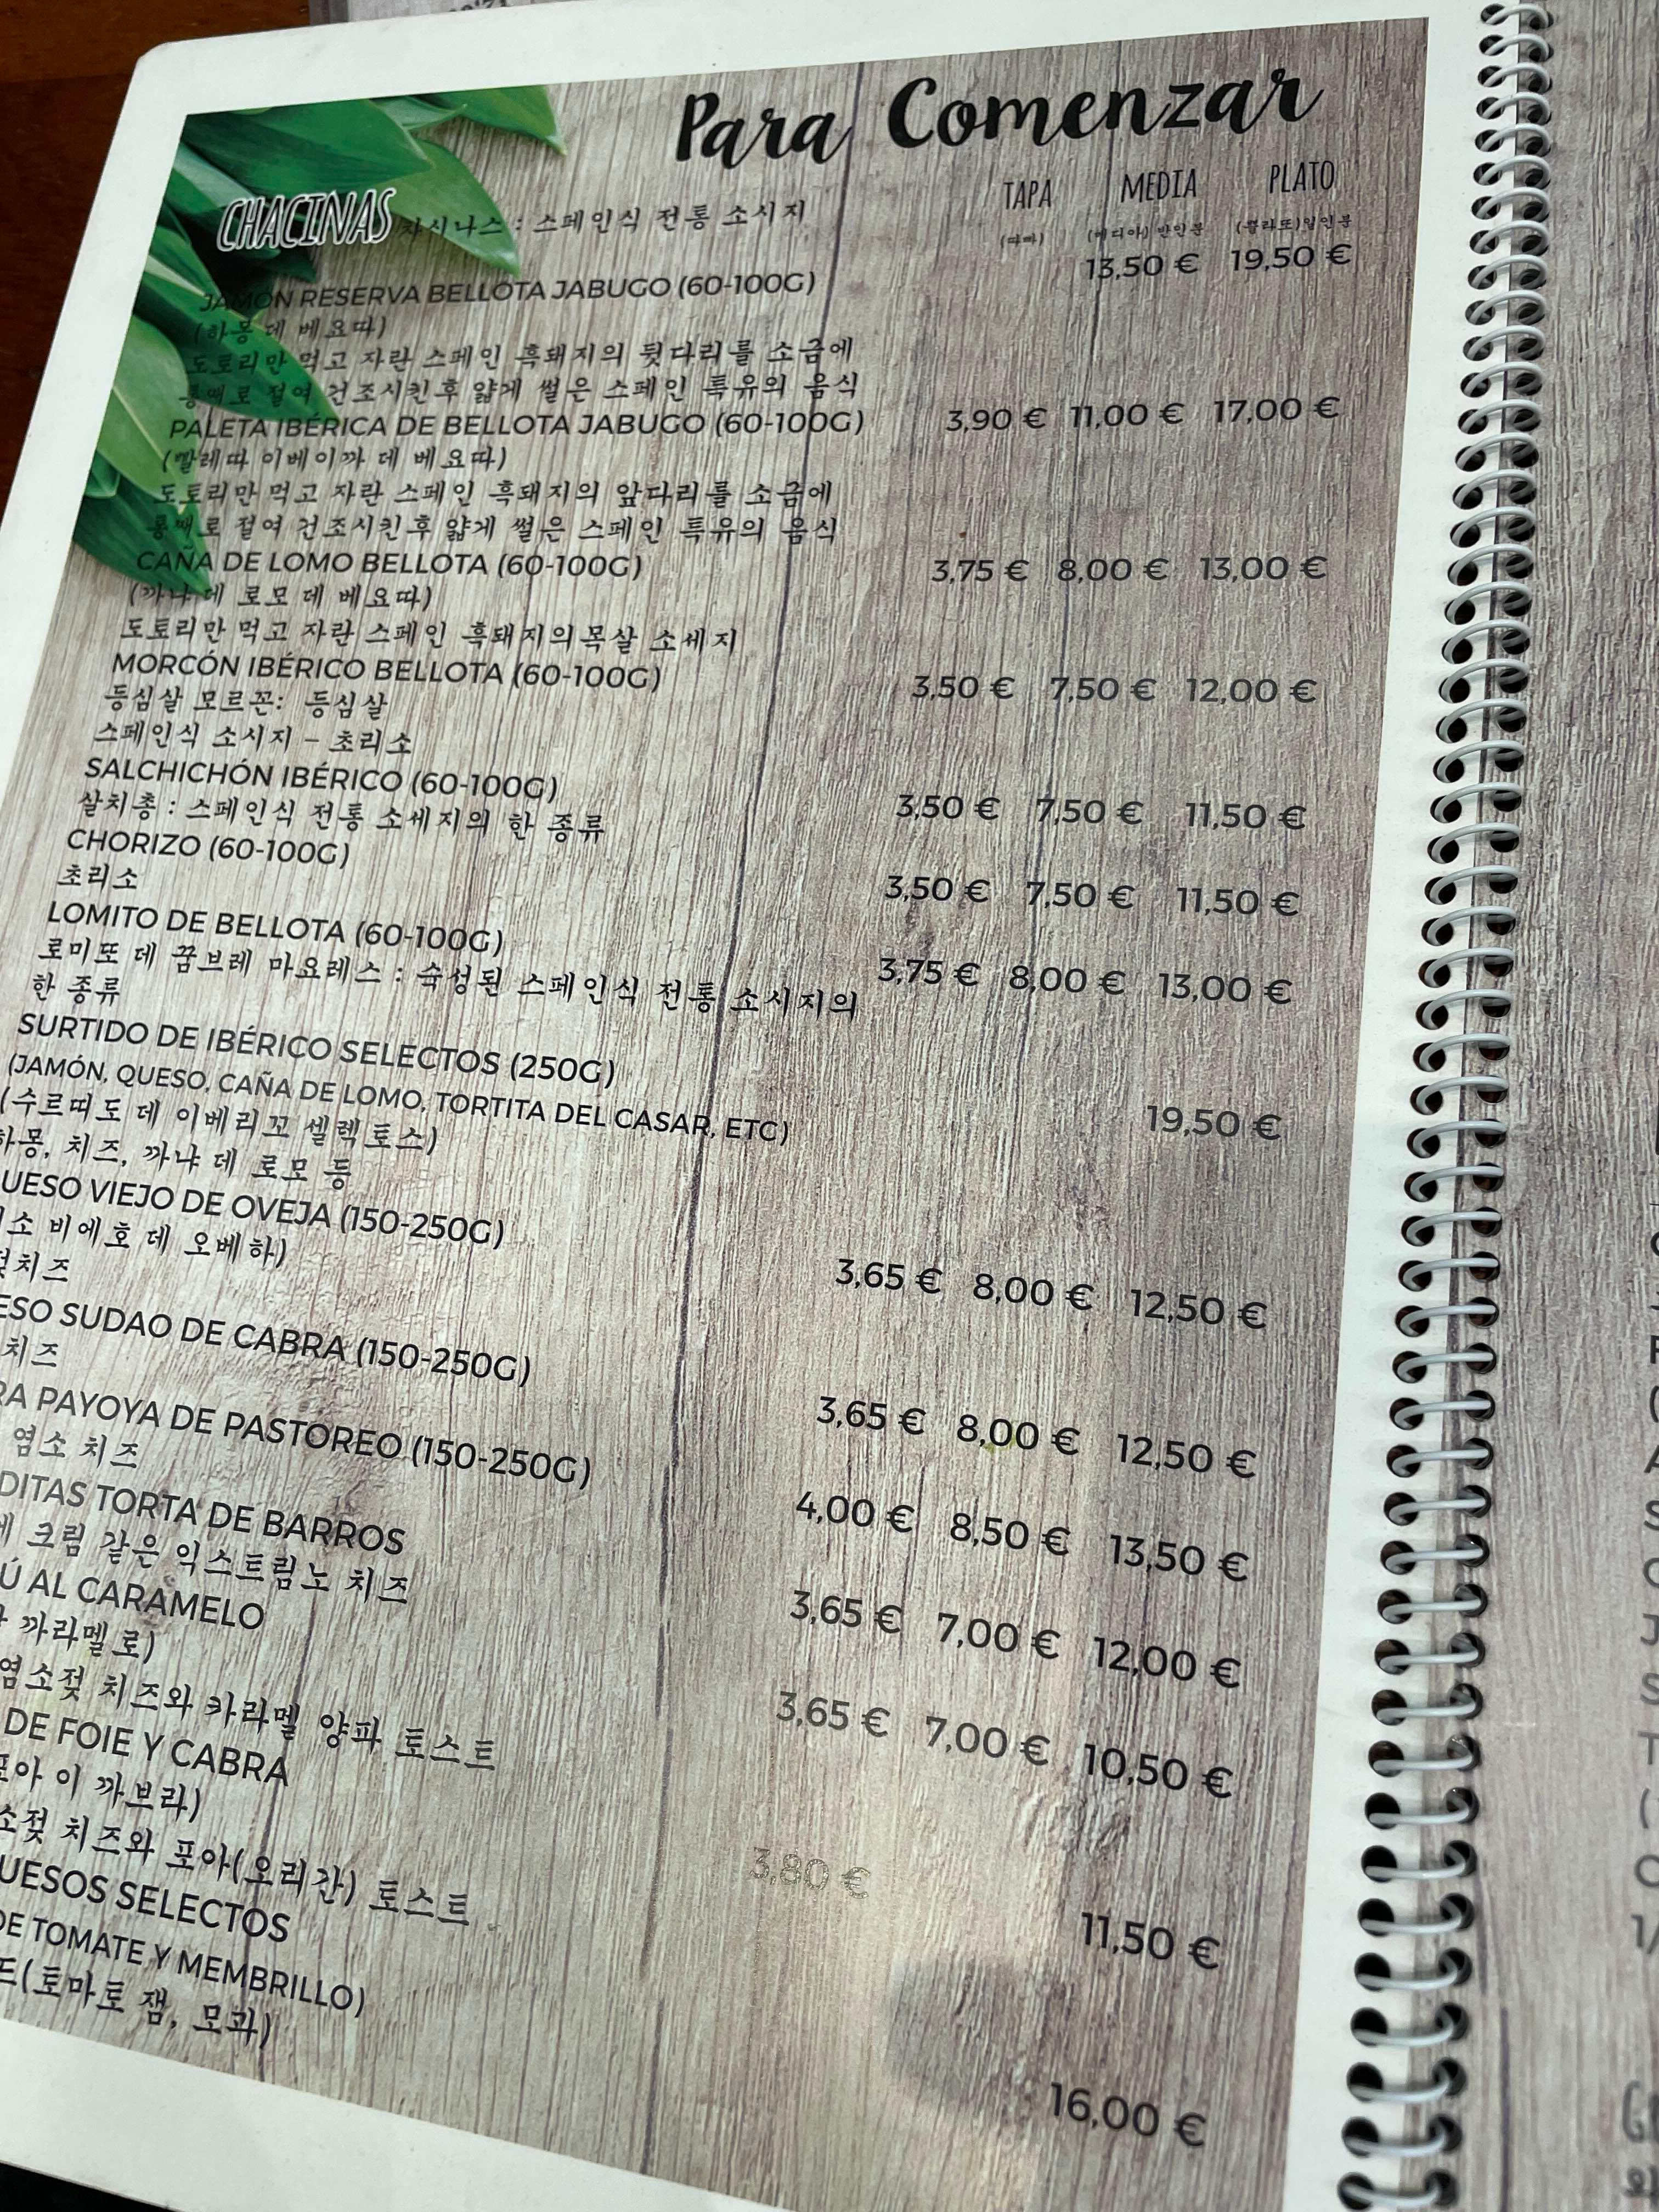 Para Comenzar
TAPA MEDIA PLATO
(따빠) (메디아) 반인분 (쁠라또)일인분
CHACINAS 차시나스 : 스페인식 전통 소시지
JAMÓN RESERVA BELLOTA JABUGO (60-100G) 13,50 € 19,50 €
(하몽 데 베요따)
도토리만 먹고 자란 스페인 흑돼지의 뒷다리를 소금에
통째로 절여 건조시킨후 얇게 썰은 스페인 특유의 음식
PALETA IBÉRICA DE BELLOTA JABUGO (60-100G) 3,90 € 11,00 € 17,00 €
(빨레따 이베이까 데 베요따)
도토리만 먹고 자란 스페인 흑돼지의 앞다리를 소금에
통째로 절여 건조시킨후 얇게 썰은 스페인 특유의 음식
CAÑA DE LOMO BELLOTA (60-100G) 3,75 € 8,00 € 13,00 €
(까냐 데 로모 데 베요따)
도토리만 먹고 자란 스페인 흑돼지의목살 소세지
MORCÓN IBÉRICO BELLOTA (60-100G) 3,50 € 7,50 € 12,00 €
등심살 모르꼰: 등심살
스페인식 소시지 - 초리소
SALCHICHÓN IBÉRICO (60-100G) 3,50 € 7,50 € 11,50 €
살치총 : 스페인식 전통 소세지의 한 종류
CHORIZO (60-100G) 3,50 € 7,50 € 11,50 €
초리소
LOMITO DE BELLOTA (60-100G) 3,75 € 8,00 € 13,00 €
로미또 데 꿈브레 마요레스 : 숙성된 스페인식 전통 소시지의
한 종류
SURTIDO DE IBÉRICO SELECTOS (250G) 19,50 €
(JAMÓN, QUESO, CAÑA DE LOMO, TORTITA DEL CASAR, ETC)
(수르띠도 데 이베리꼬 셀렉토스)
하몽, 치즈, 까냐 데 로모 등
UESO VIEJO DE OVEJA (150-250G) 3,65 € 8,00 € 12,50 €
소 비에호 데 오베하)
치즈
ESO SUDAO DE CABRA (150-250G) 3,65 € 8,00 € 12,50 €
치즈
RA PAYOYA DE PASTOREO (150-250G) 4,00 € 8,50 € 13,50 €
염소 치즈
DITAS TORTA DE BARROS 3,65 € 7,00 € 12,00 €
크림 같은 익스트림노 치즈
Ú AL CARAMELO 3,65 € 7,00 € 10,50 €
까라멜로)
염소젖 치즈와 카라멜 양파 토스트
DE FOIE Y CABRA 3,80 € 11,50 €
포아 이 까브라)
소젖 치즈와 포아(오리간) 토스트
UESOS SELECTOS 16,00 €
DE TOMATE Y MEMBRILLO)
드(토마토 잼, 모과)